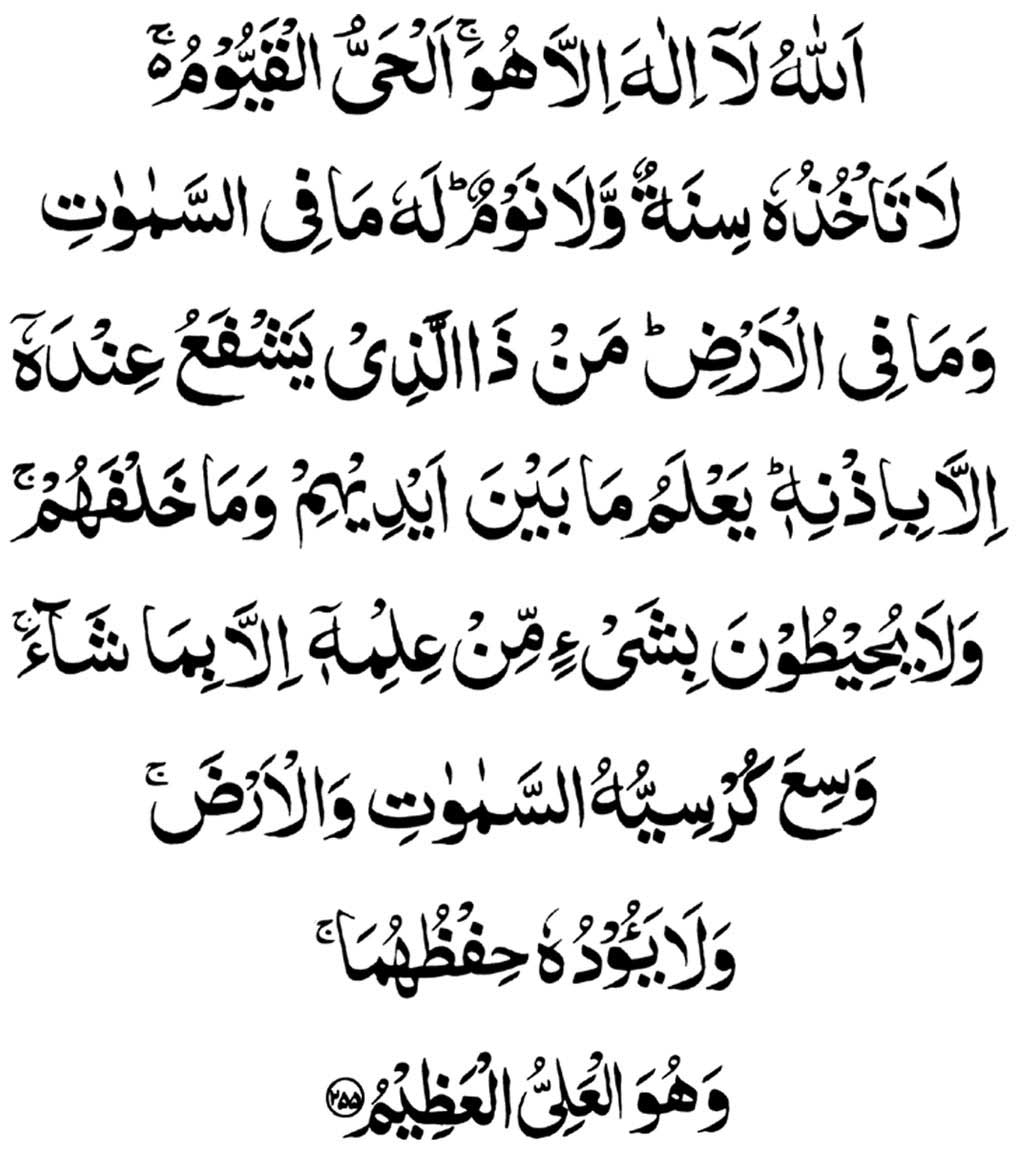 اَللّٰهُ لَآ اِلٰهَ اِلَّا هُوَۚ اَلْحَیُّ الْقَیُّوْمُ ەۚ
لَا تَاْخُذُهٗ سِنَةٌ وَّلَا نَوْمٌؕ لَهٗ مَا فِی السَّمٰوٰتِ
وَمَا فِی الْاَرْضِؕ مَنْ ذَا الَّذِیْ یَشْفَعُ عِنْدَهٗۤ
اِلَّا بِاِذْنِهٖؕ یَعْلَمُ مَا بَیْنَ اَیْدِیْهِمْ وَمَا خَلْفَهُمْۚ
وَلَا یُحِیْطُوْنَ بِشَیْءٍ مِّنْ عِلْمِهٖۤ اِلَّا بِمَا شَآءَۚ
وَسِعَ كُرْسِیُّهُ السَّمٰوٰتِ وَالْاَرْضَۚ
وَلَا یَـُٔوْدُهٗ حِفْظُهُمَاۚ
وَهُوَ الْعَلِیُّ الْعَظِیْمُ ۲۵۵